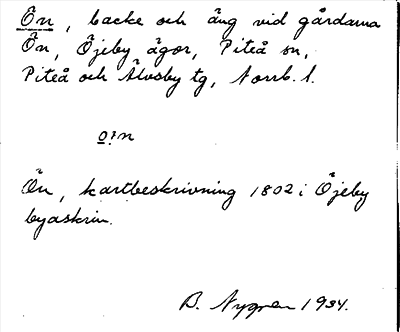 Ön, backe och äng vid gårdarna
Ön, Öjeby ägor, Piteå sn,
Piteå och Älvsby tg, Norrb. l.
o:n
Ön, kartbeskrivning 1802 i Öjeby
byaskrin.
B. Nygren 1934.